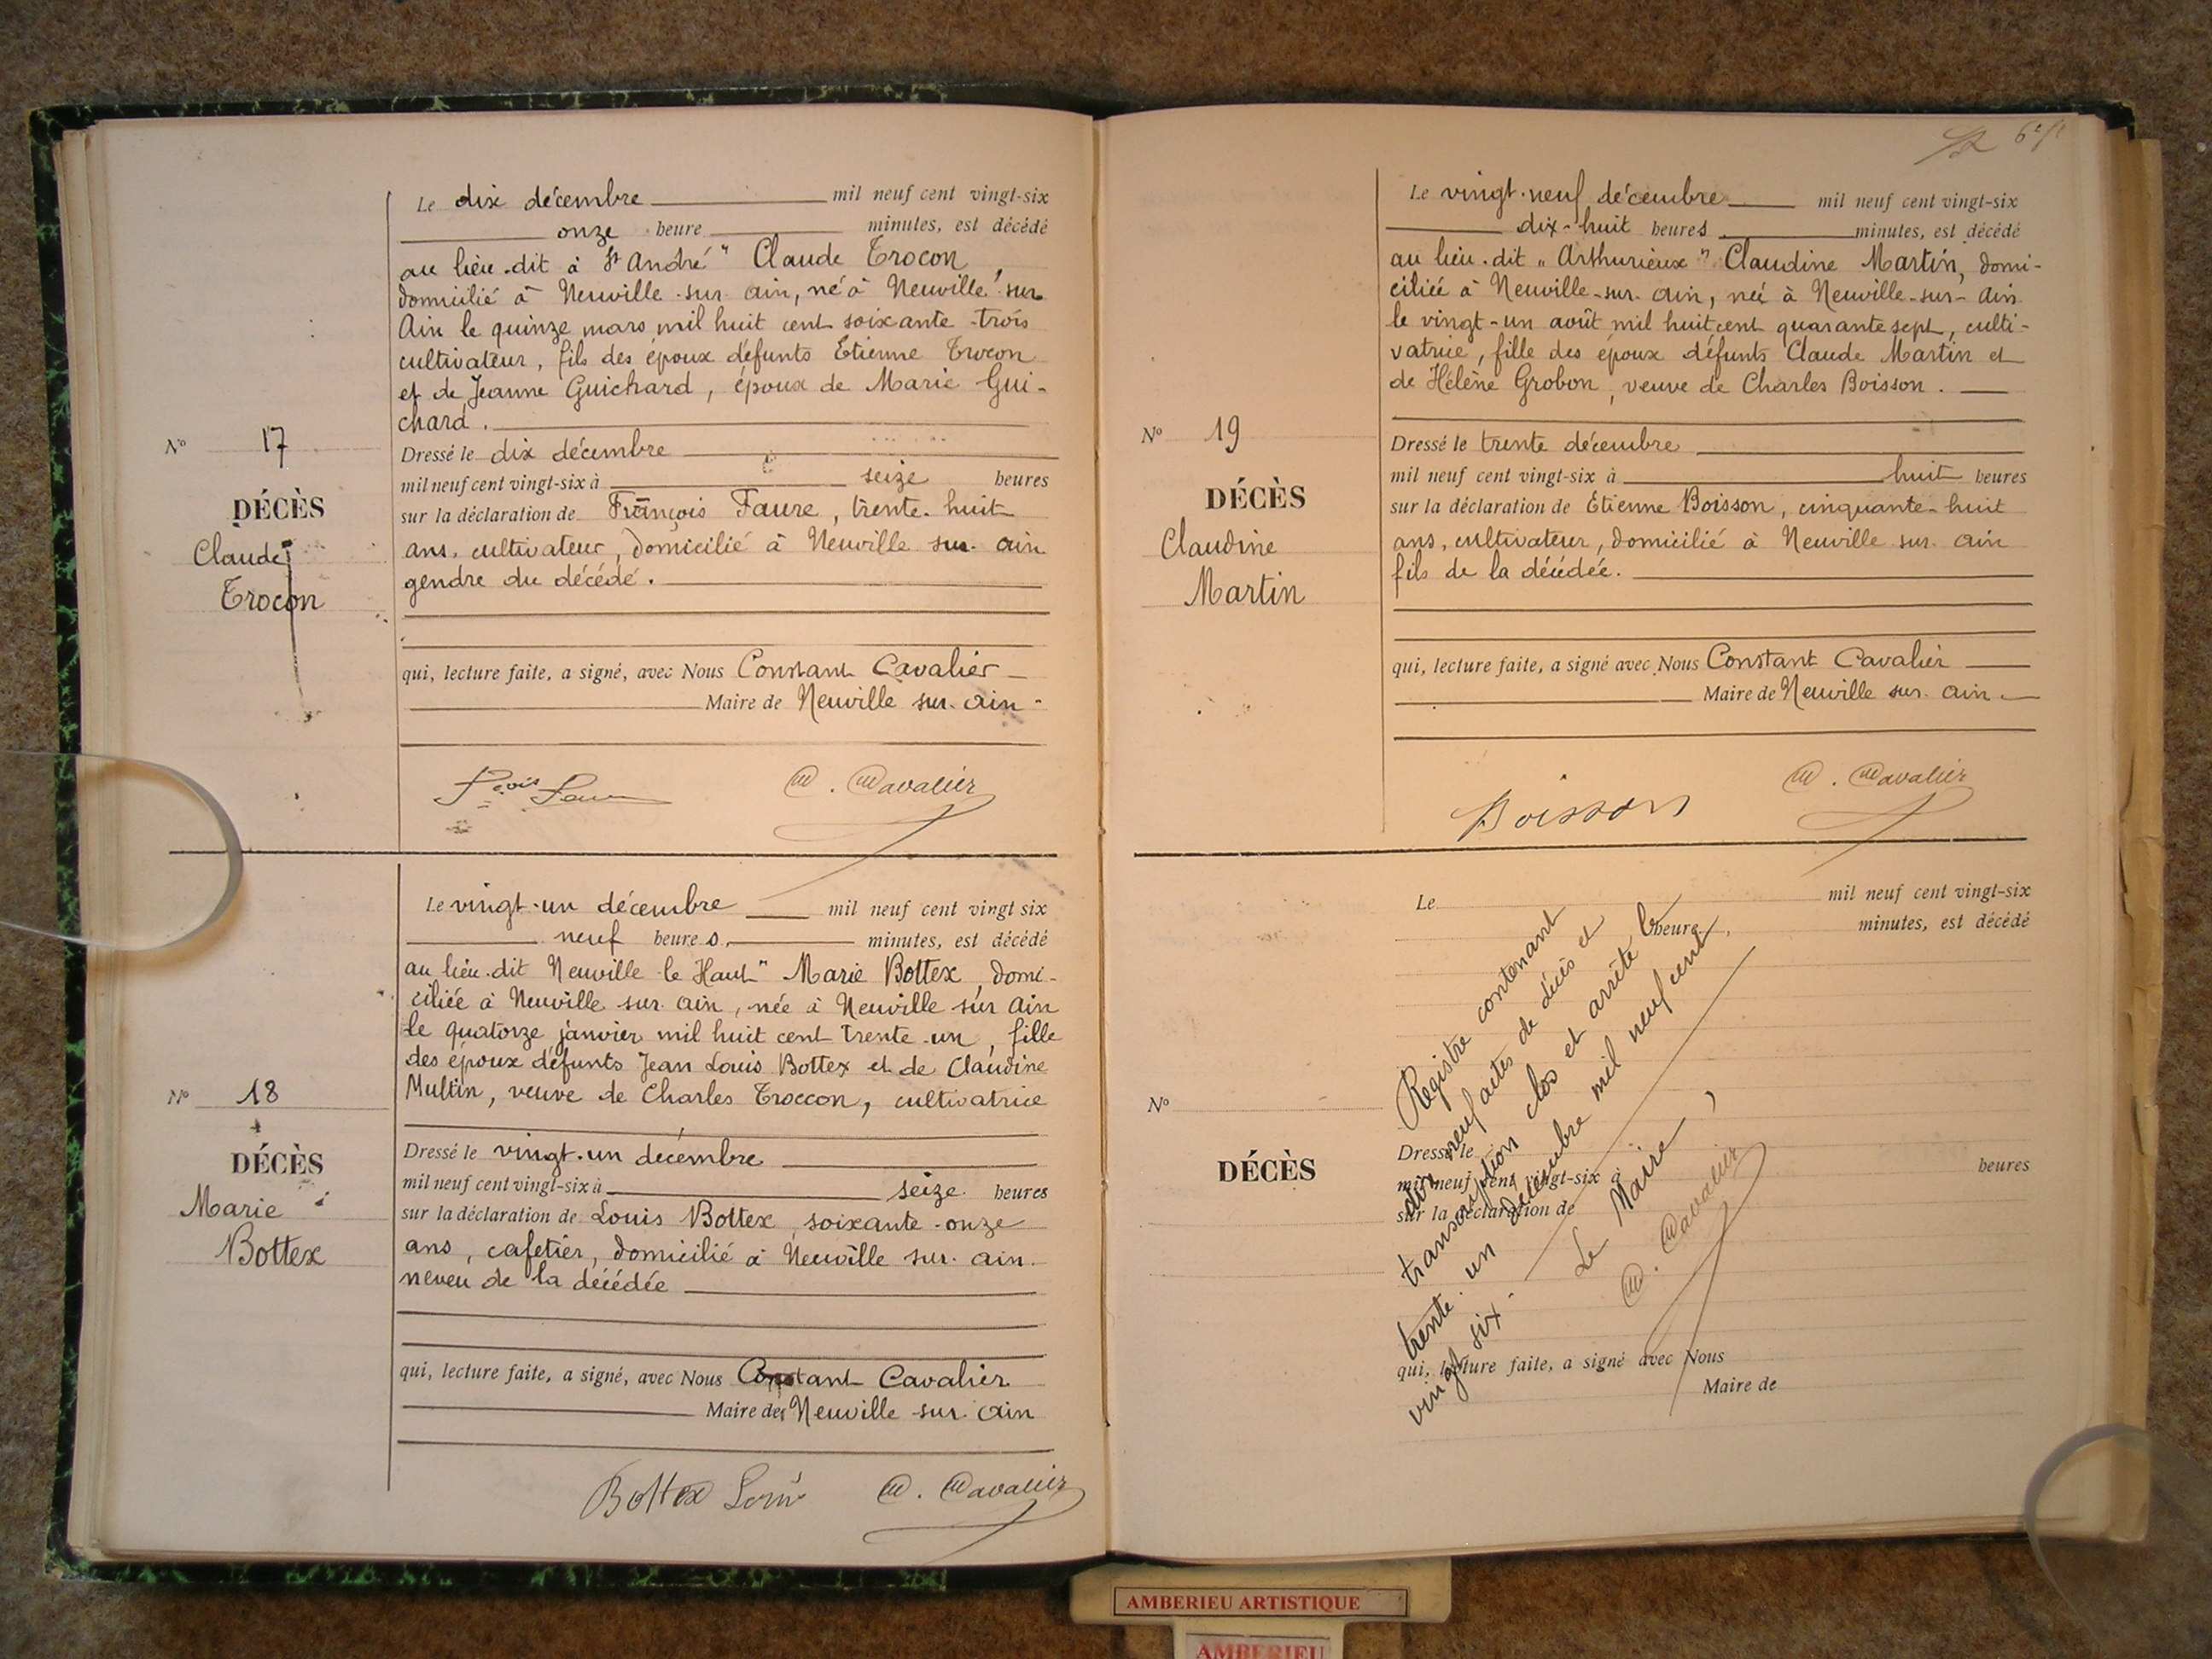 Le dix décembre mil neuf cent vingt-six
onze heure minutes, est décédé
au lieu-dit à St André" Claude Trocon,
domicilié à Neuville-sur-Ain, né à Neuville-sur
Ain le quinze mars mil huit cent soixante-trois
cultivateur, fils des époux défunts Etienne Trocon
et de Jeanne Guichard, époux de Marie Gui-
chard.
N° 17
DÉCÈS
Claude
Trocon
Dressé le dix décembre
mil neuf cent vingt-six à seize heures
sur la déclaration de François Faure, trente-huit
ans, cultivateur, domicilié à Neuville sur Ain
gendre du décédé.
qui, lecture faite, a signé, avec Nous Constant Cavalier
Maire de Neuville sur Ain
C. Cavalier
Le vingt-un décembre mil neuf cent vingt six
neuf heures minutes, est décédé
au lieu-dit Neuville le Haut" Marie Bottex, domi-
ciliée à Neuville sur Ain, née à Neuville sur Ain
le quatorze janvier mil huit cent trente-un, fille
des époux défunts Jean Louis Bottex et de Claudine
Multin, veuve de Charles Troccon, cultivatrice
N° 18
DÉCÈS
Marie
Bottex
Dressé le vingt-un décembre
mil neuf cent vingt-six à seize heures
sur la déclaration de Louis Bottex, soixante-onze
ans, cafetier, domicilié à Neuville sur Ain
neveu de la décédée
qui, lecture faite, a signé, avec Nous Constant Cavalier
Maire de Neuville sur Ain
Bottex Louis C. Cavalier
Le vingt-neuf décembre mil neuf cent vingt-six
dix-huit heures minutes, est décédé
au lieu-dit "Arthurieux" Claudine Martin, domi-
ciliée à Neuville-sur-Ain, née à Neuville-sur-Ain
le vingt-un août mil huit cent quarante sept, culti-
vatrice, fille des époux défunts Claude Martin et
de Hélène Grobon, veuve de Charles Boisson.
N° 19
DÉCÈS
Claudine
Martin
Dressé le trente décembre
mil neuf cent vingt-six à huit heures
sur la déclaration de Etienne Boisson, cinquante-huit
ans, cultivateur, domicilié à Neuville sur Ain
fils de la décédée.
qui, lecture faite, a signé avec Nous Constant Cavalier
Maire de Neuville sur Ain
Boisson C. Cavalier
Le mil neuf cent vingt-six
heure minutes, est décédé
N°
DÉCÈS
Dressé le
mil neuf cent vingt-six à heures
sur la déclaration de
qui, lecture faite, a signé avec Nous
Maire de
Registre contenant
dix neuf actes de décès et
transcription clos et arrêté le
trente-un décembre mil neuf cent
vingt six
Le Maire,
C. Cavalier
AMBERIEU ARTISTIQUE
AMBERIEU